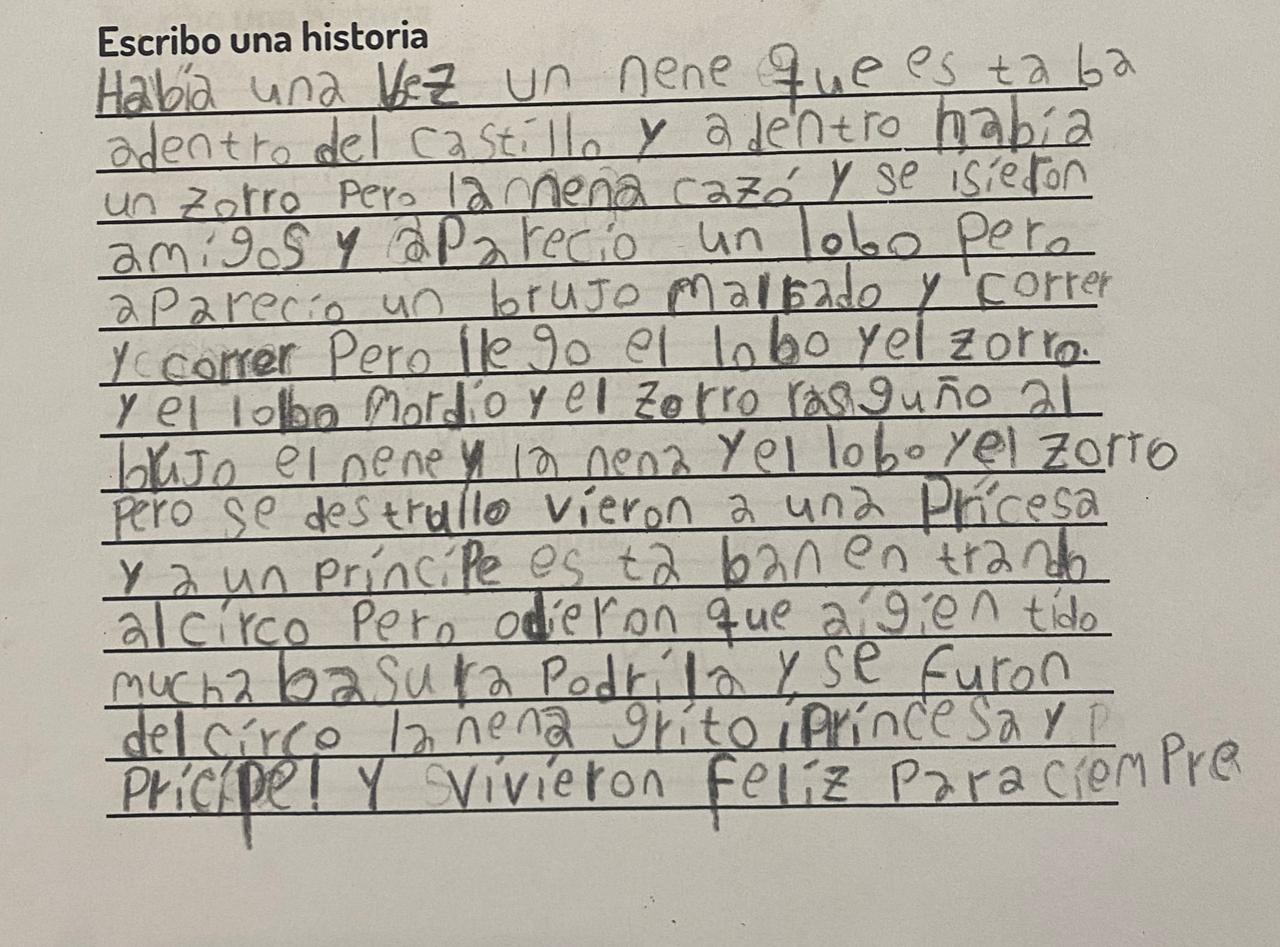 Escribo una historia
Había una vez un nene que es ta ba
adentro del castillo y adentro había
un zorro pero la nena cazó y se isieron
amigos y aparecio un lobo pero
aparecio un brujo malbado y correr
y correr pero llego el lobo yel zorro.
y el lobo mordio y el zorro rasguño al
brujo el nene y la nena yel lobo yel zorro
pero se destrullo vieron a una pricesa
y a un principe es ta ban en trando
al circo pero odieron que aigien tido
mucha basura podrila y se furon
del circo la nena grito ¡princesa y p
pricipe! y svivieron feliz para ciempre